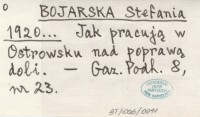 o
BOJARSKA Stefania
1920... Jak pracują w
Ostrowsku nad poprawą
doli. — Gaz. Podh. 8,
nr 23.